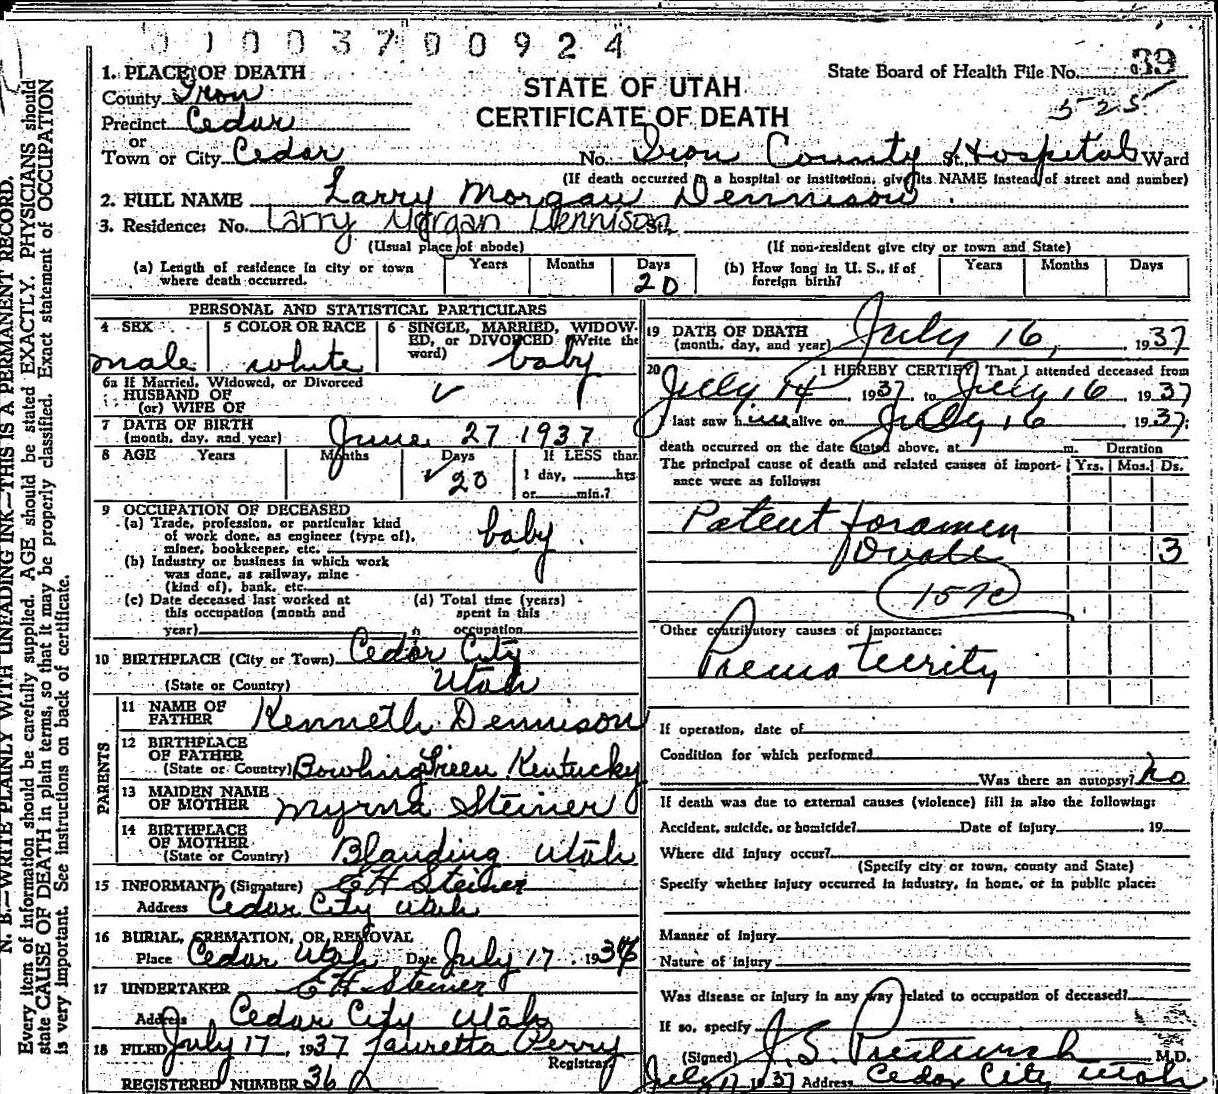 01003700924
1. PLACE OF DEATH
County Iron
Precinct Cedar
or
Town or City Cedar
STATE OF UTAH
CERTIFICATE OF DEATH
State Board of Health File No. 39
525
No. Iron County St. Hospital Ward
(If death occurred in a hospital or institution, give its NAME instead of street and number)
2. FULL NAME Larry Morgan Dennison
3. Residence: No. Larry Morgan Dennison St.
(Usual place of abode) (If non-resident give city or town and State)
(a) Length of residence in city or town where death occurred. Years Months Days 20
(b) How long in U. S., if of foreign birth? Years Months Days
PERSONAL AND STATISTICAL PARTICULARS
4 SEX male
5 COLOR OR RACE white
6 SINGLE, MARRIED, WIDOW-
ED, or DIVORCED (Write the
word) baby
6a If Married, Widowed, or Divorced
HUSBAND OF
(or) WIFE OF
7 DATE OF BIRTH
(month, day, and year) June 27 1937
8 AGE Years Months Days 20
If LESS than
1 day, hrs
or min.?
9 OCCUPATION OF DECEASED
(a) Trade, profession, or particular kind
of work done, as engineer (type of),
miner, bookkeeper, etc. baby
(b) Industry or business in which work
was done, as railway, mine
(kind of), bank, etc.
(c) Date deceased last worked at
this occupation (month and
year)
(d) Total time (years)
spent in this
occupation
10 BIRTHPLACE (City or Town) Cedar City
(State or Country) Utah
PARENTS
11 NAME OF
FATHER Kenneth Dennison
12 BIRTHPLACE
OF FATHER
(State or Country) Bowling Green Kentucky
13 MAIDEN NAME
OF MOTHER Myrna Steiner
14 BIRTHPLACE
OF MOTHER
(State or Country) Blanding Utah
15 INFORMANT (Signature) E H Steiner
Address Cedar City Utah
16 BURIAL, CREMATION, OR REMOVAL
Place Cedar Utah Date July 17, 193
17 UNDERTAKER E H Steiner
Address Cedar City Utah
18 FILED July 17, 1937 Lauretta Perry
Registrar
REGISTERED NUMBER 36
19 DATE OF DEATH
(month, day, and year) July 16, 1937
20 I HEREBY CERTIFY That I attended deceased from
July 14 1937, to July 16 1937
I last saw him alive on July 16 1937;
death occurred on the date stated above, at m.
Duration
The principal cause of death and related causes of import-
ance were as follows: Yrs. Mos. Ds.
Patent foramen
Ovale 3
Other contributory causes of importance:
Prematurity
If operation, date of
Condition for which performed
Was there an autopsy? no
If death was due to external causes (violence) fill in also the following:
Accident, suicide, or homicide? Date of injury , 19
Where did injury occur?
(Specify city or town, county and State)
Specify whether injury occurred in industry, in home, or in public place:
Manner of injury
Nature of injury
Was disease or injury in any way related to occupation of deceased?
If so, specify
(Signed) J. S. Prestwich M.D.
July 17 1937 Address Cedar City Utah
N. B.—WRITE PLAINLY WITH UNFADING INK—THIS IS A PERMANENT RECORD.
Every item of information should be carefully supplied. AGE should be stated EXACTLY. PHYSICIANS should
state CAUSE OF DEATH in plain terms, so that it may be properly classified. Exact statement of OCCUPATION
is very important. See instructions on back of certificate.